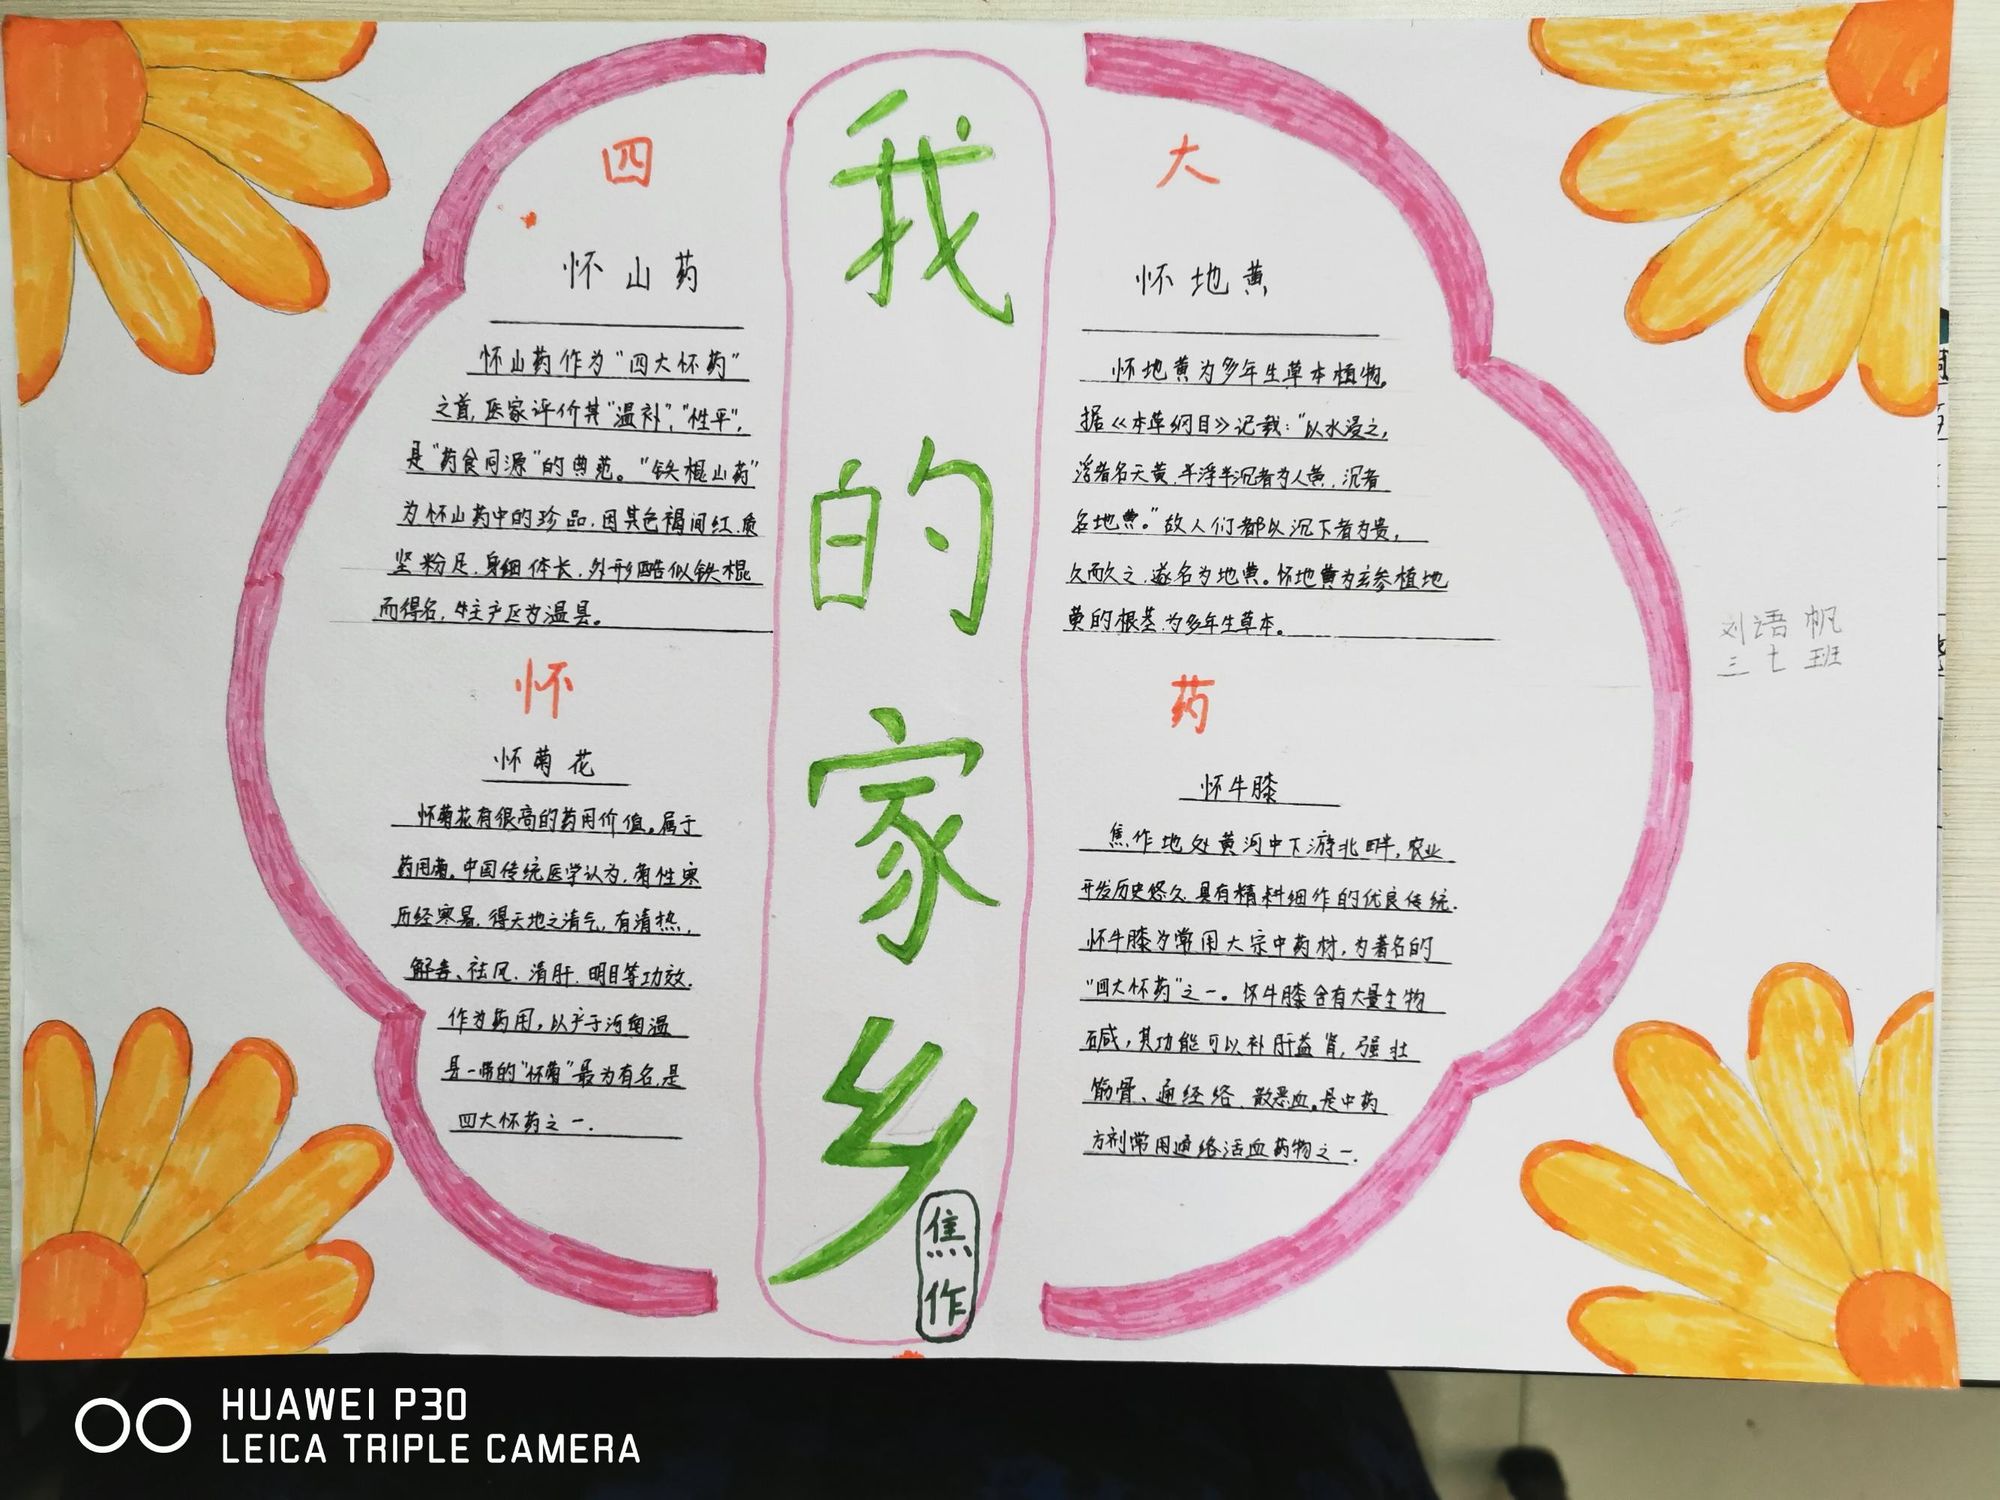 我的家乡
焦作
四
大
怀山药
怀山药作为“四大怀药”
之首,医家评价其“温补”,“性平”,
是“药食同源”的典范。“铁棍山药”
为怀山药中的珍品,因其色褐间红,质
坚粉足,身细体长,外形酷似铁棍
而得名,主产区为温县。
怀地黄
怀地黄为多年生草本植物。
据《本草纲目》记载:“以水浸之,
浮者名天黄,半浮半沉者为人黄,沉者
名地黄。”故人们都以沉下者为贵,
久而久之,遂名为地黄。怀地黄为玄参植地
黄的根茎,为多年生草本。
怀
药
怀菊花
怀菊花有很高的药用价值。属于
药用菊。中国传统医学认为,菊性寒
历经寒暑,得天地之清气,有清热,
解毒、祛风、清肝、明目等功效.
作为药用,以产于河南温
县一带的“怀菊”最为有名,是
四大怀药之一.
怀牛膝
焦作地处黄河中下游北畔,农业
开发历史悠久,具有精耕细作的优良传统.
怀牛膝为常用大宗中药材,为著名的
“四大怀药”之一。怀牛膝含有大量生物
碱,其功能可以补肝益肾,强壮
筋骨、通经络、散恶血。是中药
方剂常用通络活血药物之一.
刘语帆
三七班
HUAWEI P30
LEICA TRIPLE CAMERA